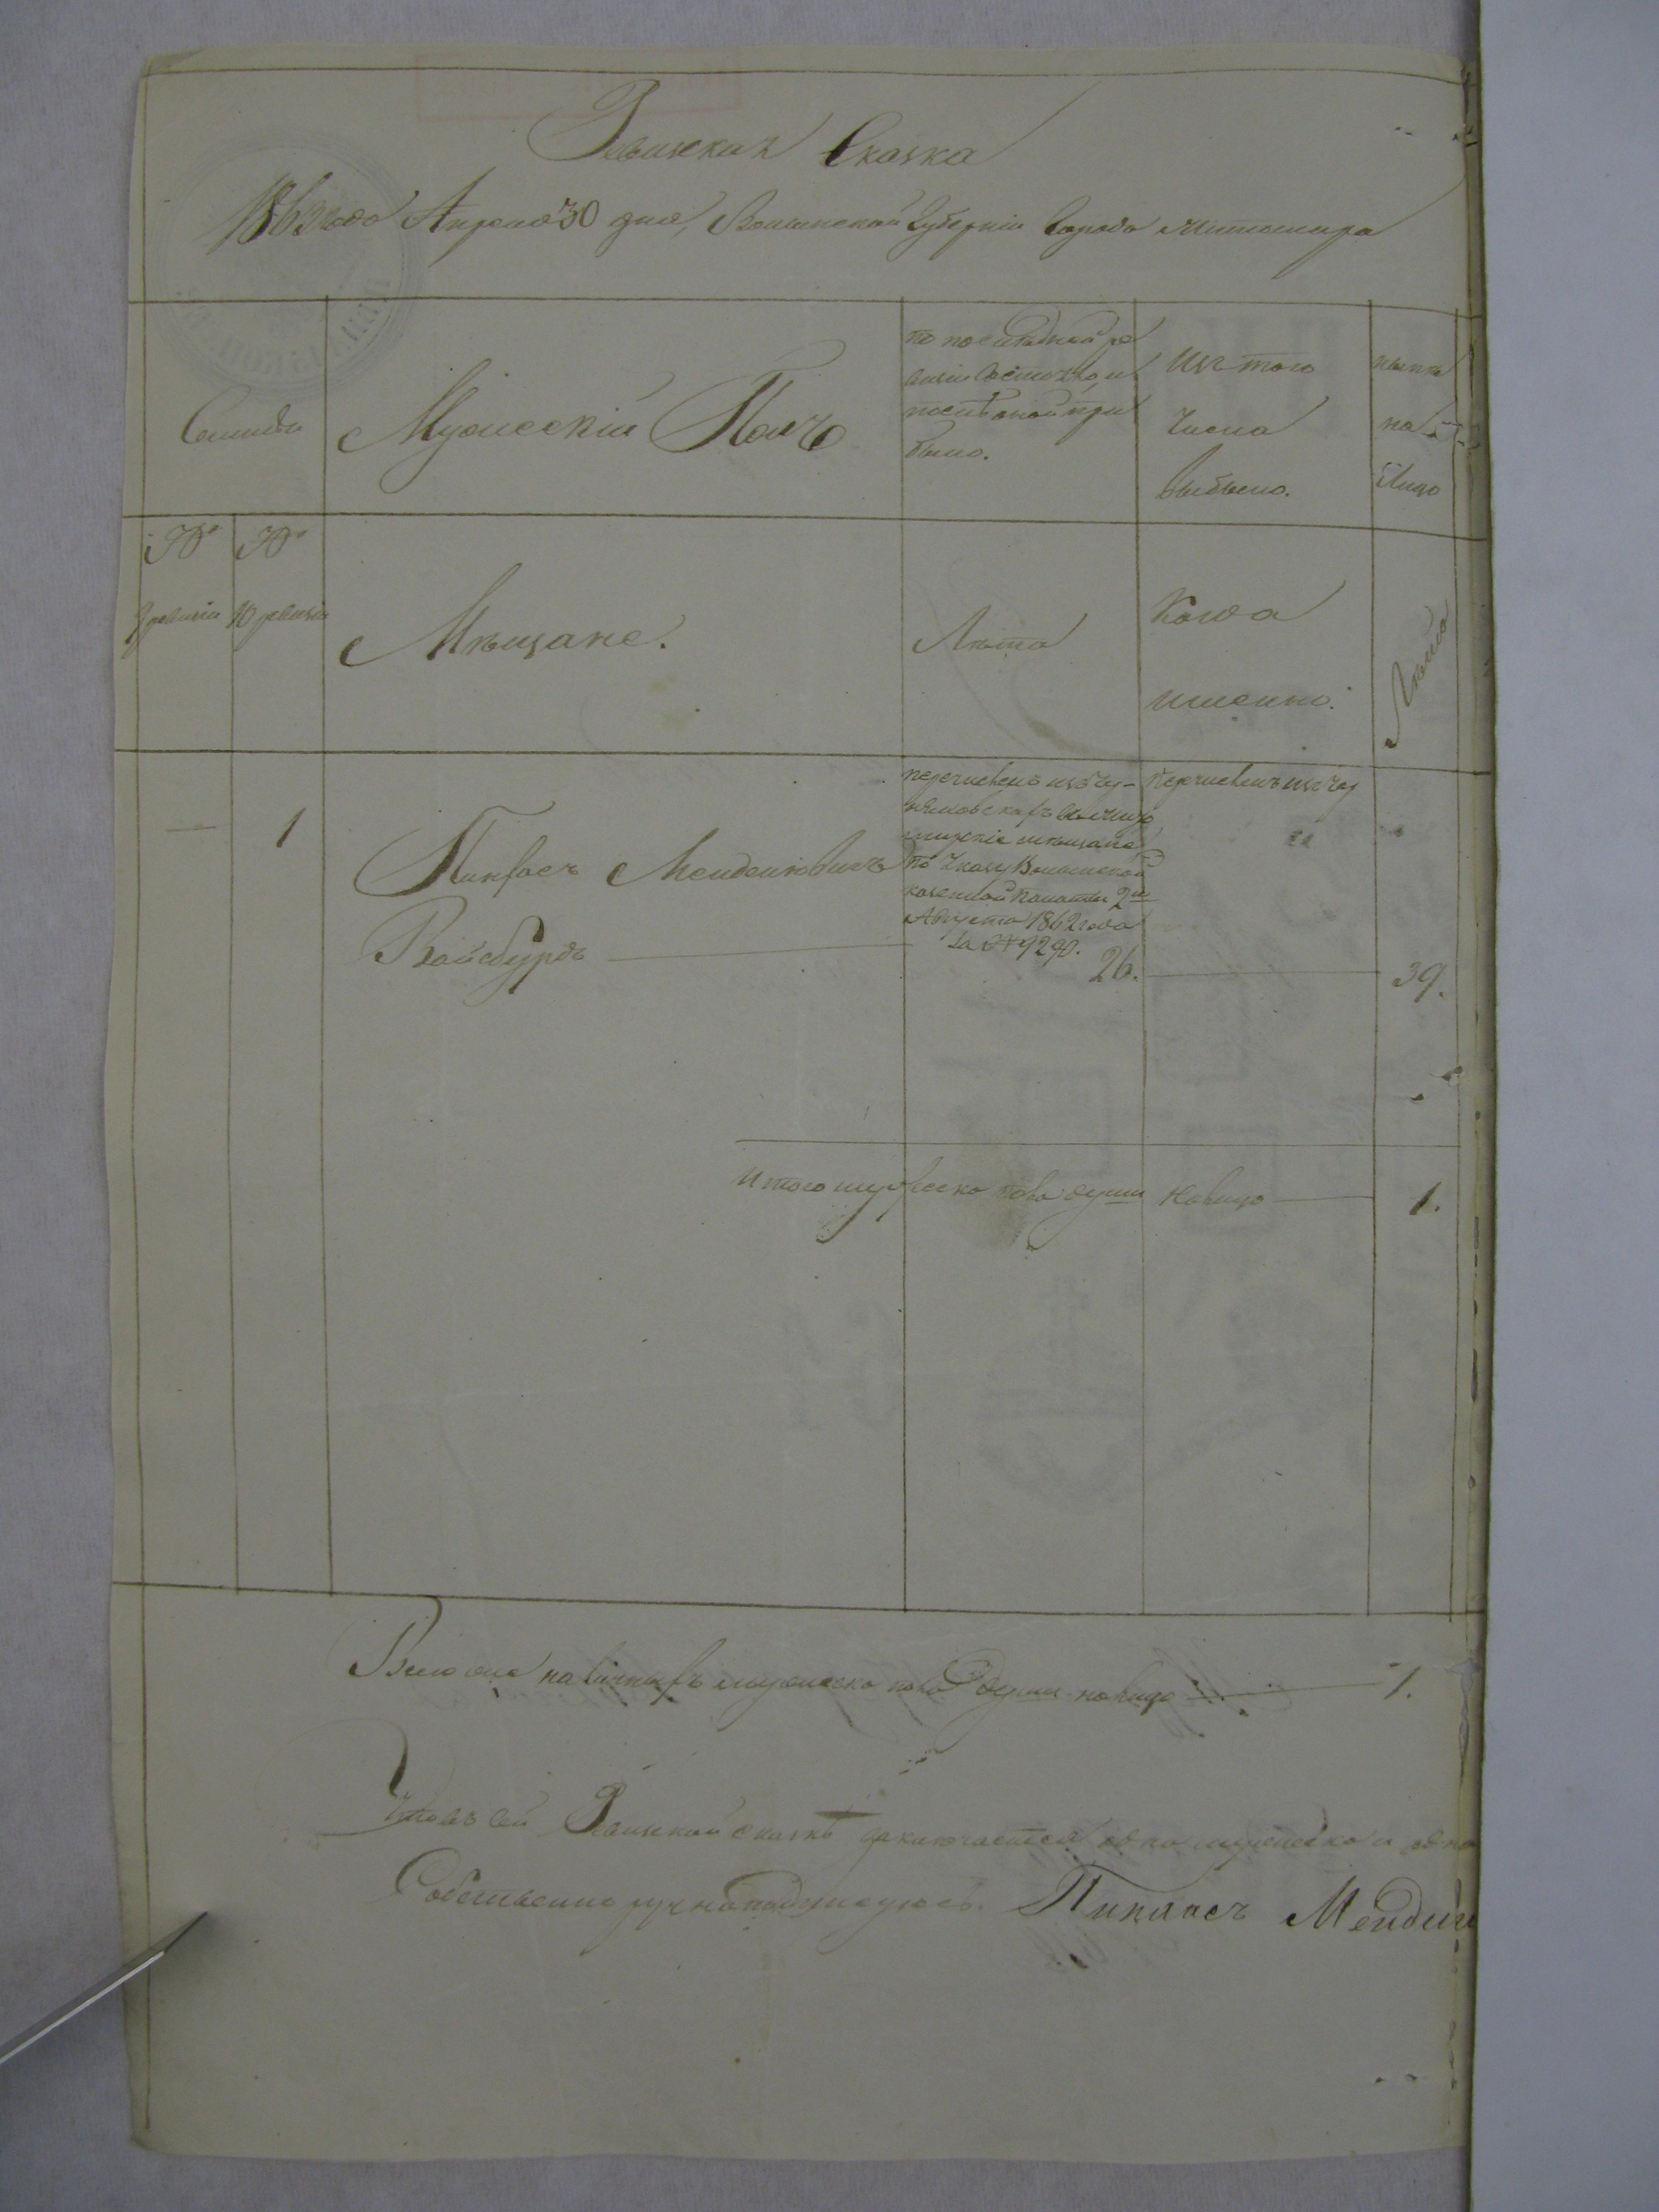 Ревизская Сказка
1863 года Апреля 30 дня, Волынской Губерніи Города Житомира
Семьи
Мужескій Полъ
по последней ре
визіи состояло и
после оной при
было.
Изъ того
числа
выбыло.
ныне
на
лицо
№ №
9 ревизіи 10 ревизіи
Мѣщане.
Лѣта
Когда
именно.
Лѣта
— 1
Пинхасъ Менделіовичъ
Вайсбурдъ
перечисленъ изъ Чуд-
новскаго
мѣщане
по Указу Волынской
казенной Палаты 2го
Августа 1862 года
за № 9290.
26.
Перечисленъ изъ Чуд
39.
Итого мужеско пола души налицо 1.
Всего наличныхъ мужеска пола души налицо 1.
Что въ сей Ревизской сказке заключается одна мужеска и одна
Собственно ручно подписуюсь. Пинхасъ Мендел